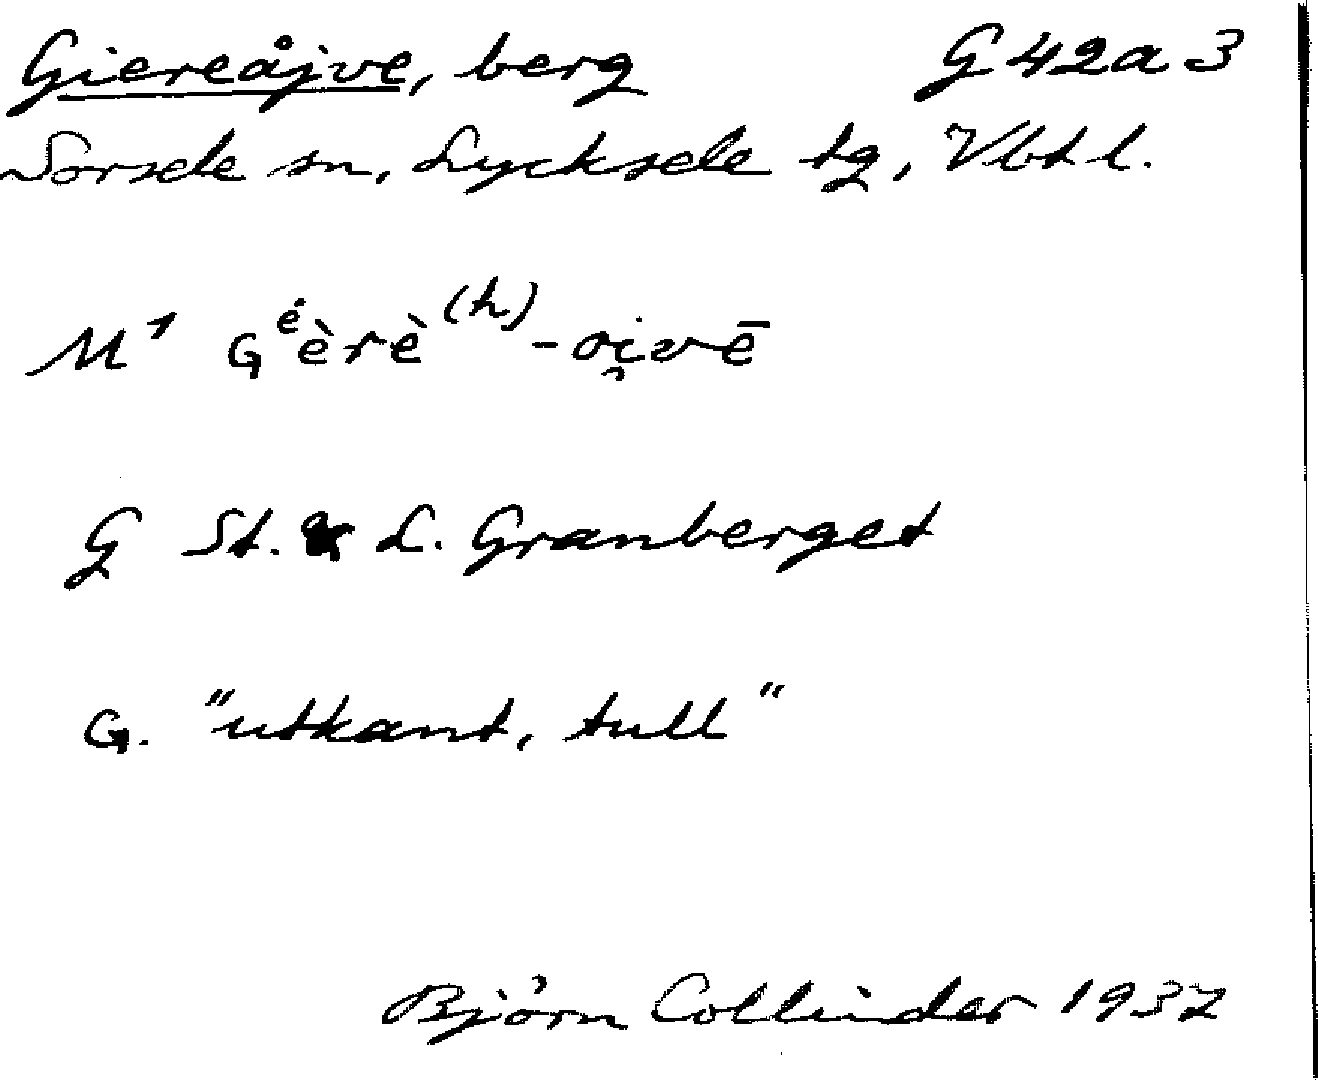 Giereåjve, berg G 42a 3
Sorsele sn, Lycksele tg, Vbt l.
M1 Gėèrè(h)-oi̯vē
G St. & L. Granberget
G. "utkant, tull"
Björn Collinder 1937